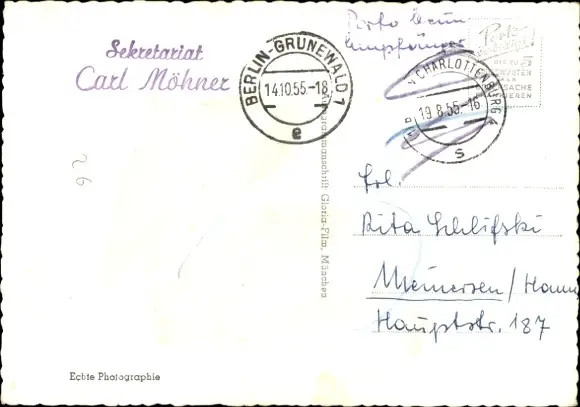 Sekretariat
Carl Möhner
BERLIN-GRUNEWALD 1
14.10.55.-18
e
Porto beim
Empfänger
CHARLOTTENBURG 4
19.8.55.-16
s
Autogrammanschrift: Gloria-Film, München
26
Frl.
Rita Schlifski
Meinersen/Hann
Hauptstr. 187
Echte Photographie